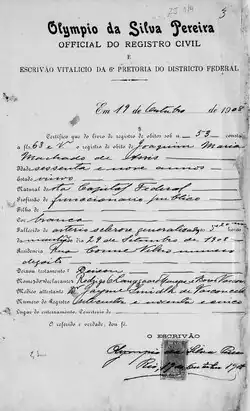 3
Olympio da Silva Pereira
OFFICIAL DO REGISTRO CIVIL
E
ESCRIVÃO VITALICIO DA 6ª PRETORIA DO DISTRICTO FEDERAL
Em 19 de Outubro de 1908
Certifico que do livro de registro de obitos sob n. 53 consta
a fls. 63 e V. o registro de obito de Joaquim Maria
Machado de Assis
Idade sessenta e nove annos
Estado viuvo
Natural desta Capital Federal
Profissão funccionario publico
Filho de
Cor branca
Fallecido de arterio sclerose generalisada
29 de Setembro de 1908
Residencia rua Cosme Velho numero
dezoito
Deixou testamento: Deixou
Nome do declarante
Medico attestante Dr. Jayme
Numero do Registro
Lugar do enterramento. Cemiterio de
O referido é verdade; dou fé.
O ESCRIVÃO
Olympio da Silva Pereira
Rio, 19 de Outubro 1908